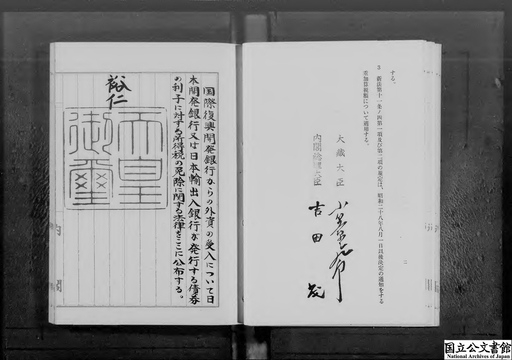 する。
5 新法第十一条ノ四第一項及び第二項の規定は、昭和二十八年八月一日以後決定の通知をする
査加算税額について適用する。
大蔵大臣
内閣総理大臣 吉田茂
国際復興開発銀行からの外資の受入について日
本開発銀行又は日本輸出入銀行が発行する債券
の利子に対する所得税の免除に関する法律をここに公布する。
裕仁
天皇
御璽
国立公文書館
National Archives of Japan